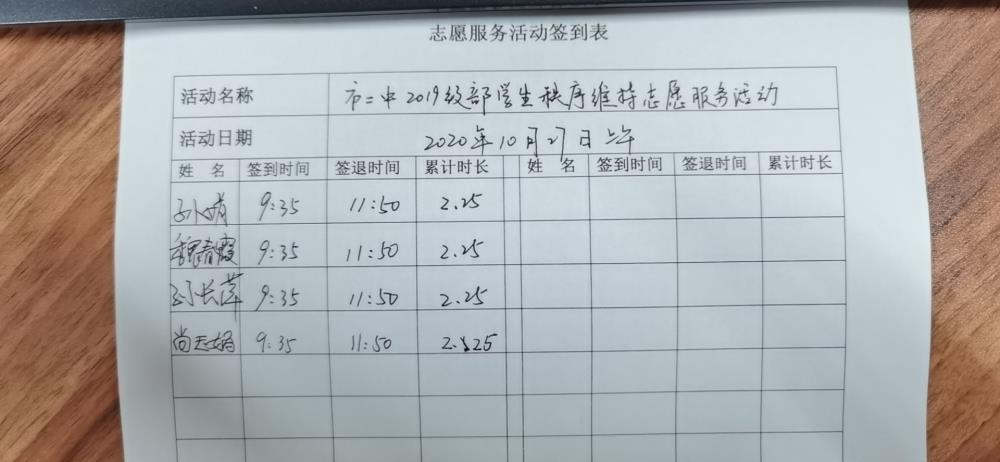 志愿服务活动签到表
活动名称 市二中2019级部学生秩序维持志愿服务活动
活动日期 2020年10月27日上午
姓 名 签到时间 签退时间 累计时长 姓 名 签到时间 签退时间 累计时长
孙娟 9:35 11:50 2.25
魏春霞 9:35 11:50 2.25
孙长萍 9:35 11:50 2.25
尚志娟 9:35 11:50 2.25